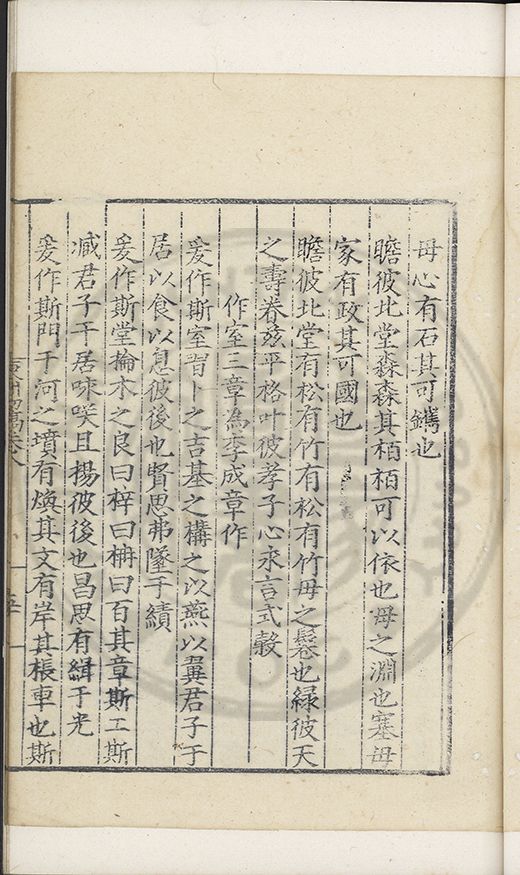 母心有石其可鐫也
瞻彼北堂森森其栢栢可以依也母之淵也塞母
家有政其可國也
瞻彼北堂有松有竹有松有竹母之鬆也綠彼天
之壽眷玆平格叶彼孝子心永言式穀
作室三章為李成章作
爰作斯室習卜之吉基之構之以燕以翼君子于
居以食以息彼後也賢思弗墜于績
爰作斯堂掄木之良曰梓曰枏曰百其章斯工斯
臧君子于居咏咲且楊彼後也昌思有緝于光
爰作斯門于河之墳有煥其文有岸其棖車也斯